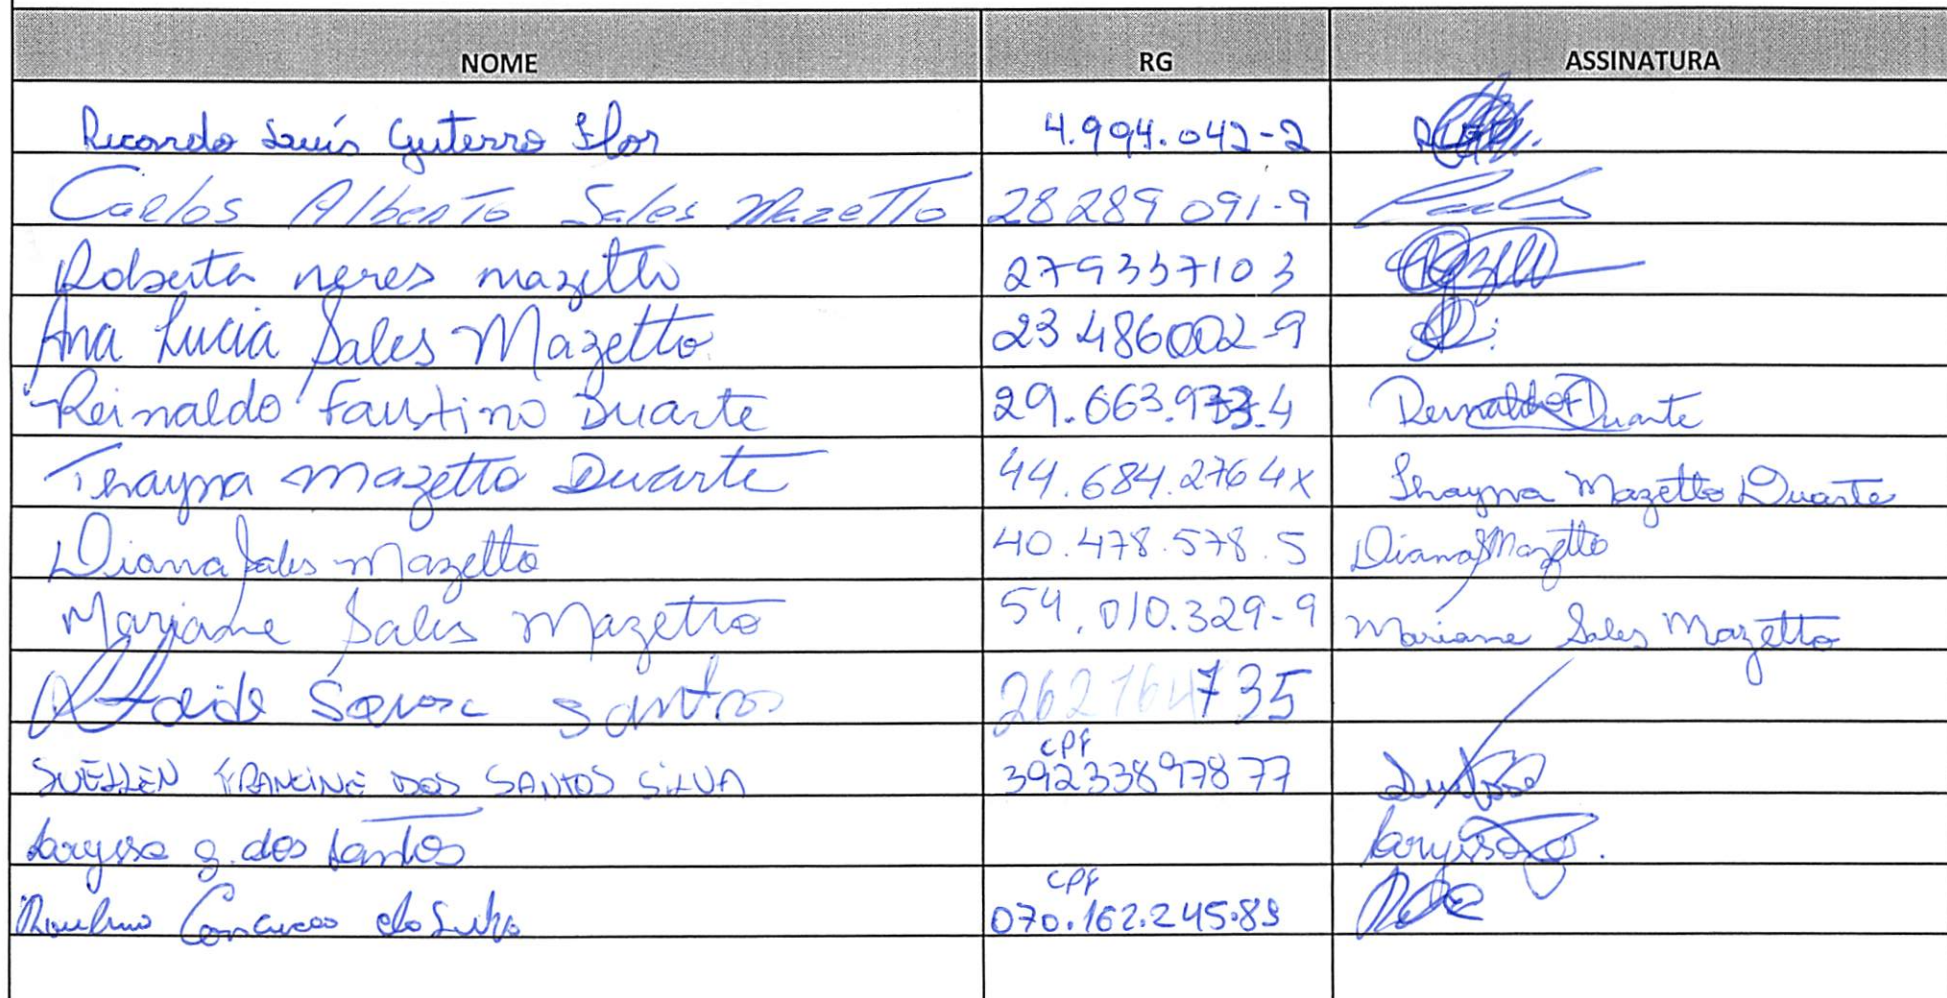 NOME RG ASSINATURA
Ricardo Luís Guterro Flor 4.994.042-2
Carlos Alberto Sales Mazetto 28 289 091-9
Roberta neres mazetto 279337103
Ana Lucia Sales Mazetto 23 486002-9
Reinaldo Faustino Duarte 29.663.933-4 Reinaldo F Duarte
Thayna Mazetto Duarte 44.684.2764x Thayna Mazetto Duarte
Diana Sales Mazetto 40.478.578.5 Diana S Mazetto
Mariane Sales Mazetto 54.010.329-9 Mariane Sales Mazetto
Santos 262164735
CPF
SUELLEN FRANCINE DOS SANTOS SILVA 39233897877
Laryssa g. dos Santos Laryssa
CPF
da Silva 070.162.245.89